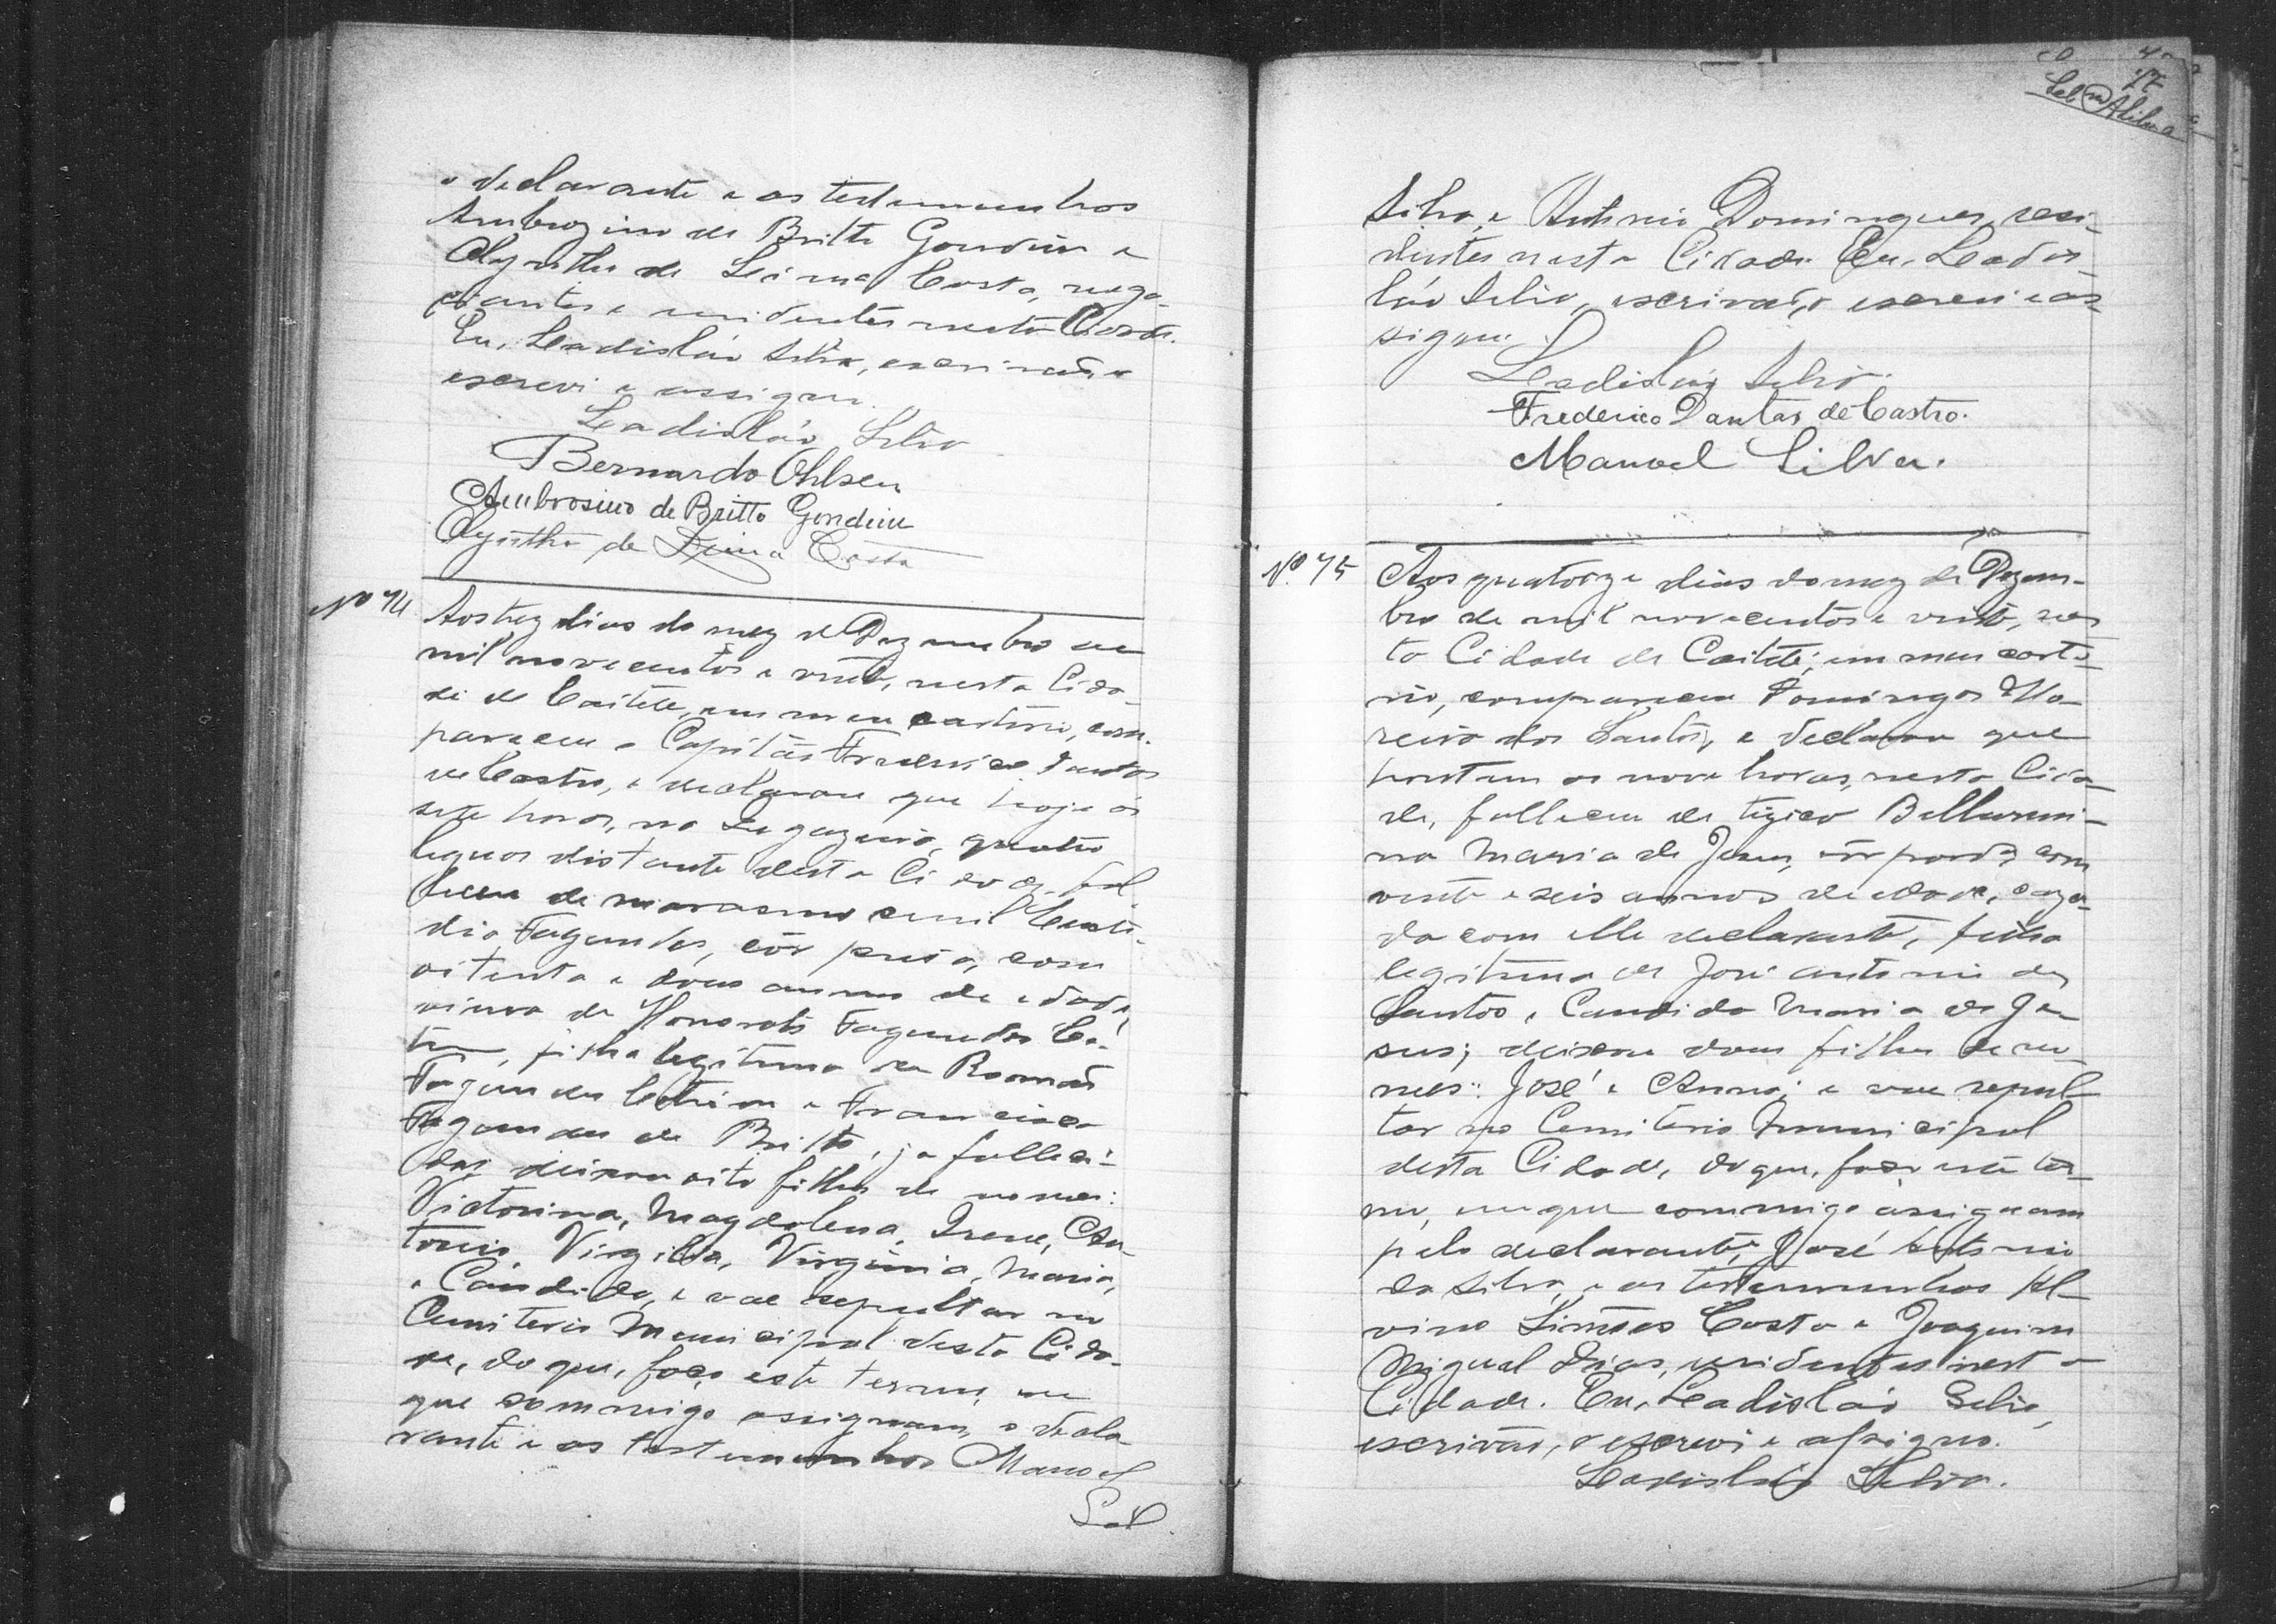 o declarante e as testemunhas
Ambrozino de Britto Gondim e
Agritho de Lima Costa, nego-
ciantes e residentes nesta Cidade.
Eu, Leadisláo Silva, escrivão, o
escrevi e assigno.
Leadisláo Silva
Bernardo Ohlsen
Ambrosino de Britto Gondim
de Lima Costa
Nº 74
Aos trez dias do mez de Dezembro de
mil novecentos e vinte, nesta Cida-
de de Caiteté, em meu cartorio, com-
pareceu o Capitão Frederico Dantas
de Castro, e declarou que hoje ás
sete horas, no quatro
leguas distante desta Cidade, fal-
leceu de marasmo senil
Fagundes, côr preta, com
oitenta e dous annos de edade,
viuva de Honorato Fagundes Co-
trim, filha legitima de Romão
Fagundes Cotrim e Francisca
Fagundes de Britto, ja falleci-
dos; deixou oito filhos de nomes:
Victorina, Magdalena, Irene, An-
tonio, Virgilia, Virginia, Maria,
e Candida, e vae sepultar no
Cemiterio Municipal desta Cida-
de, do que, faço este termo, em
que commigo assignam, o decla-
rante e as testemunhas Manoel
Sil
Silva, e Antonio Domingues, resi-
dentes nesta Cidade. Eu, Leadis-
láo Silva, escrivão, o escrevi e as-
signo.
Leadisláo Silva.
Frederico Dantas de Castro.
Manoel Silva.
Nº 75
Aos quatorze dias do mez de Dezem-
bro de mil novecentos e vinte, nes-
ta Cidade de Caiteté, em meu carto-
rio, compareceu Domingos Mo-
reira dos Santos, e declarou que
hontem as nove horas, nesta Cida-
de, falleceu de tizica Bellarmi-
na Maria de Jesus, côr parda, com
vinte e seis annos de edade, caza-
da com elle declarante, filha
legitima de José Antonio dos
Santos e Candida Maria de Je-
sus; deixou dous filhos de no-
mes: José e Anna; e vae sepul-
tar no Cemiterio Municipal
desta Cidade, do que, faço este ter-
mo, em que commigo assignam
pelo declarante, José Antonio
da Silva, e as testemunhas Al-
vino Simões Costa e Joaquim
Miguel Dias, residentes nesta
Cidade. Eu, Leadisláo Silva,
escrivão, o escrevi e assigno.
Leadisláo Silva.